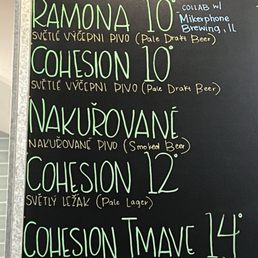 RAMONA 10°
COLLAB W/
Mikerphone
Brewing, IL
SVĚTLÉ VÝČEPNI PIVO (Pale Draft Beer)
COHESION 10°
SVĚTLÉ VÝČEPNI PIVO (Pale Draft Beer)
NAKUŘOVANÉ
NAKUŘOVANÉ PIVO (Smoked Beer)
COHESION 12°
SVĚTLÝ LEŽÁK (Pale Lager)
COHESION TMAVE 14°